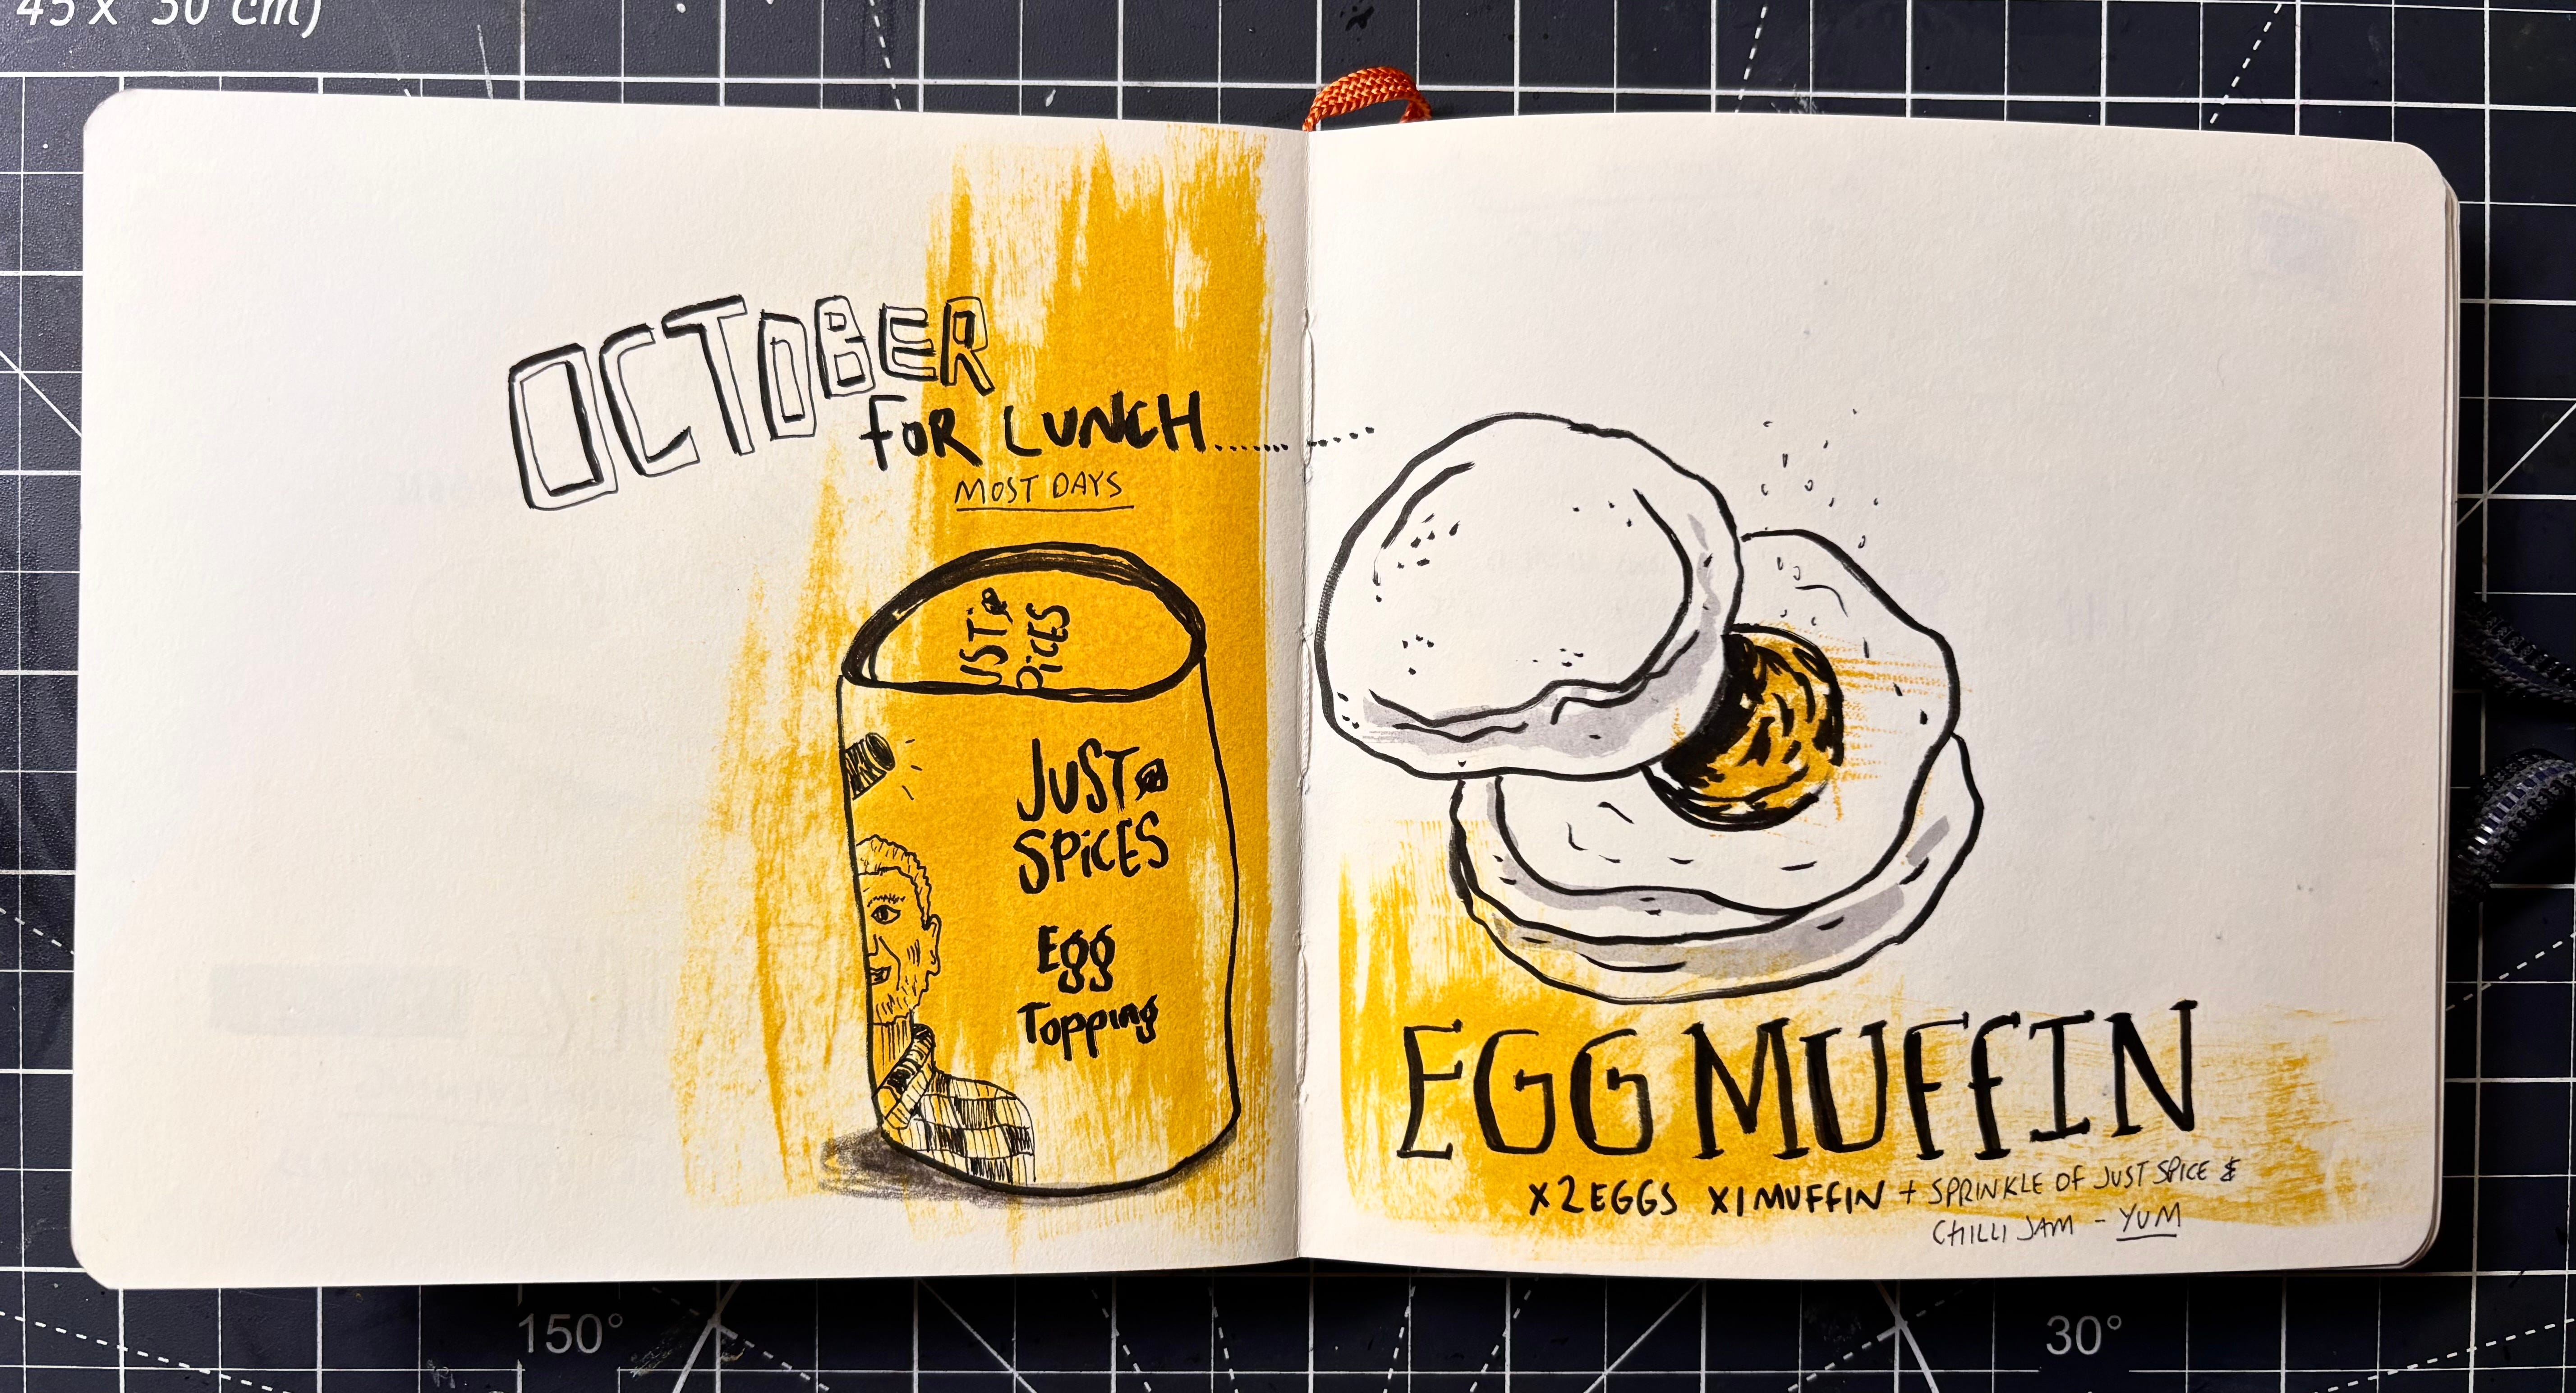 45 x 30 cm)
OCTOBER
FOR LUNCH..............
MOST DAYS
UST
PiCES
JUST
SPiCES
Egg
Topping
EGG MUFFIN
x2 EGGS x1 MUFFIN + SPRINKLE OF JUST SPICE &
CHILLI JAM - YUM
150°
30°